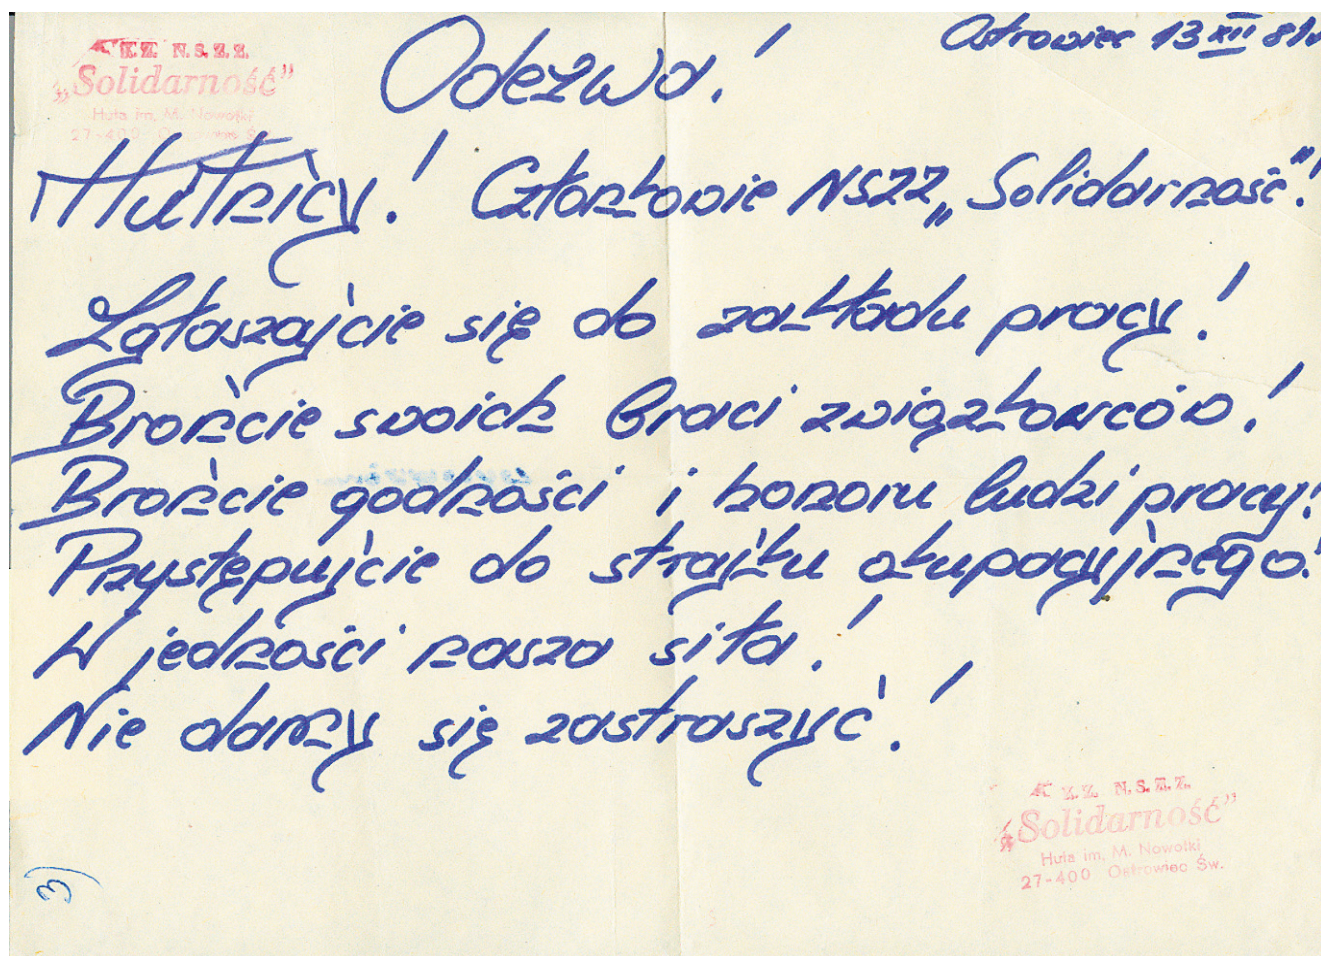 K Z.Z. N.S.Z.Z.
„Solidarność”
Huta im. M. Nowotki
27-400 Ostrowiec Św.
Ostrowiec 13 XII 81r
Odezwa!
Hutnicy! Członkowie NSZZ „Solidarność”!
Zgłaszajcie się do zakładu pracy!
Brońcie swoich braci związkowców!
Brońcie godności i honoru ludzi pracy!
Przystępujcie do strajku okupacyjnego!
W jedności nasza siła!
Nie damy się zastraszyć!
K Z.Z. N.S.Z.Z.
„Solidarność”
Huta im. M. Nowotki
27-400 Ostrowiec Św.
3)